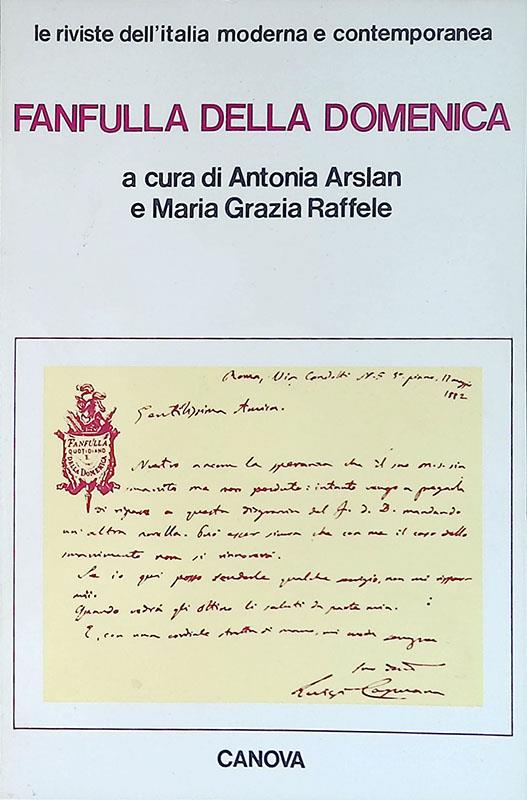 le riviste dell'italia moderna e contemporanea
FANFULLA DELLA DOMENICA
a cura di Antonia Arslan
e Maria Grazia Raffele
Roma, Via Condotti N. 5 3° piano, 1882
Gentilissima Amica.
FANFULLA
QUOTIDIANO
E
DELLA DOMENICA
Nutro ancora la speranza che il suo ms. sia
smarrito ma non perduto: intanto vengo a pregarla
di riparare a questa disgrazia del F. d. D. mandando
un'altra novella. Può esser sicura che con me il caso dello
smarrimento non si rinnoverà.
Se io qui posso renderle qualche servizio, non mi rispar
mii.
Quando vedrà gli Ottino li saluti da parte mia.
E, con una cordiale stretta di mano, mi creda sempre
Suo
Luigi Capuana
CANOVA